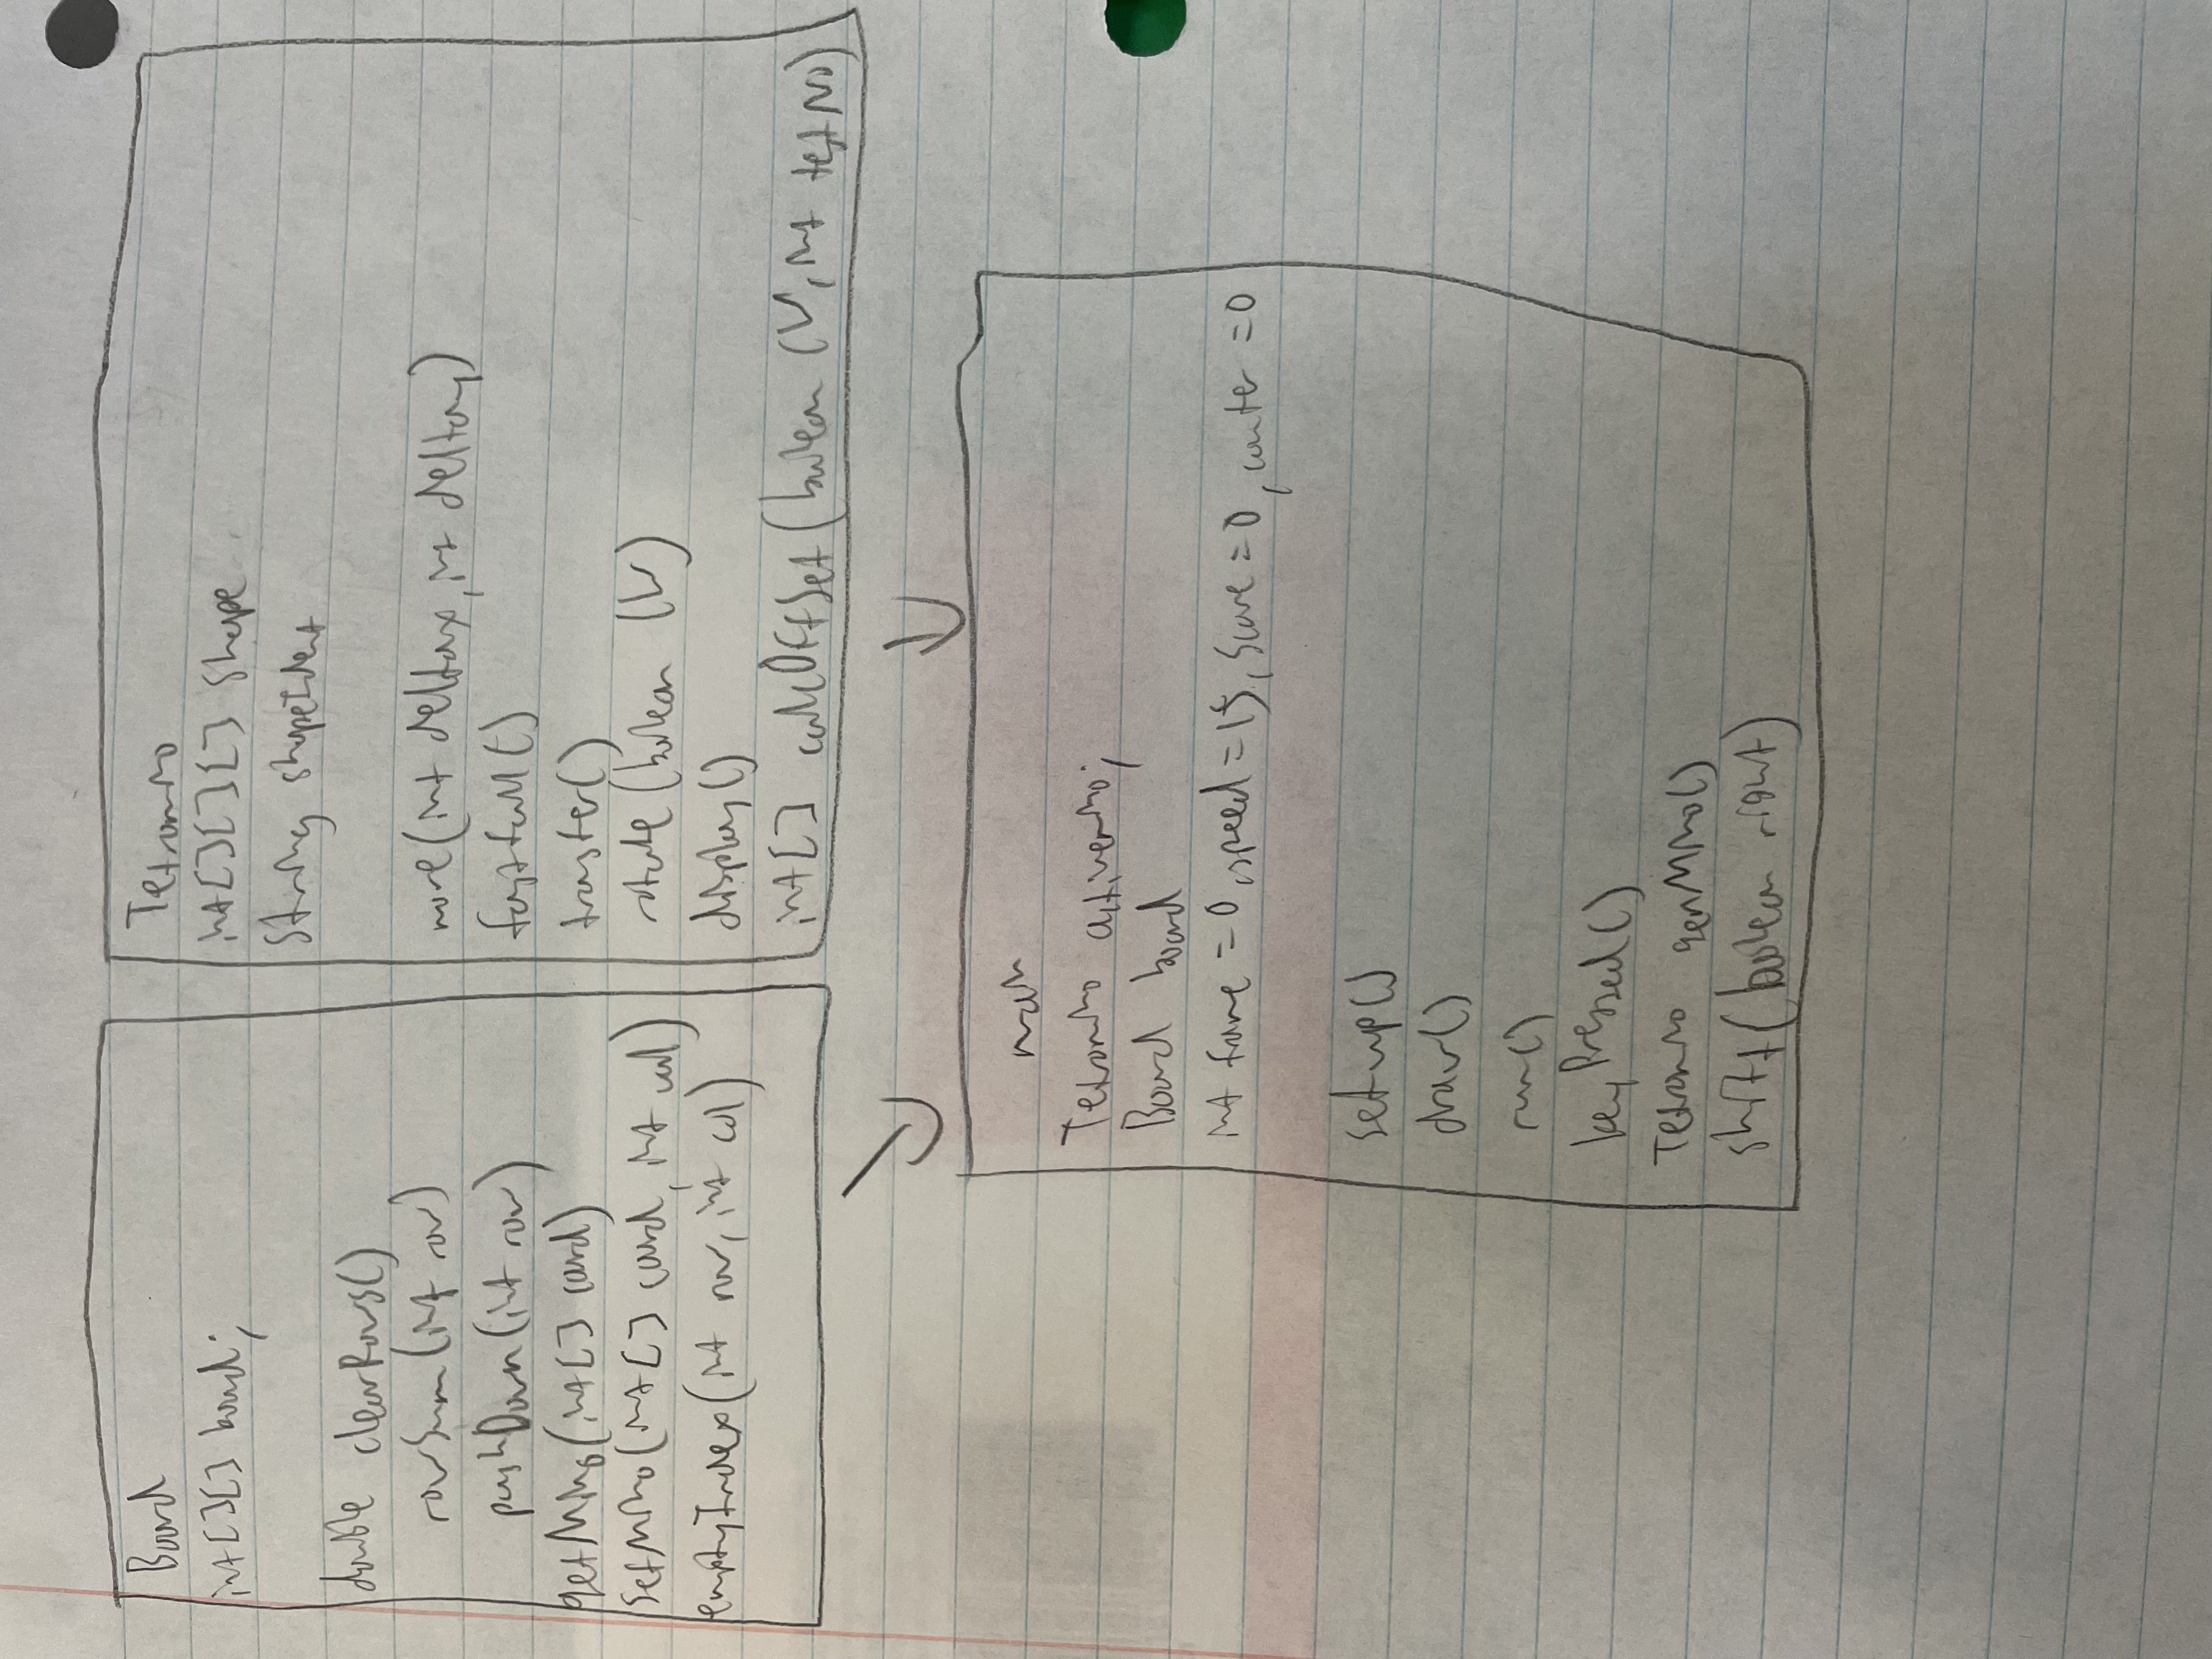 Board
int[][] board;
double clearRows()
rowSum(int row)
pushDown(int row)
getMino(int[] coord)
setMino(int[] coord, int col)
emptyIndex(int row, int col)
Tetromino
int[][][] shape
String shapeIdent
move(int deltax, int deltay)
fastfall()
transfer()
rotate(boolean CW)
display()
int[] calcOffset(boolean CW, int testNo)
main
Tetromino activemino;
Board board
int frame = 0, speed = 15, score = 0, counter = 0
setup()
draw()
run()
keyPressed()
Tetromino genMino()
shift(boolean right)